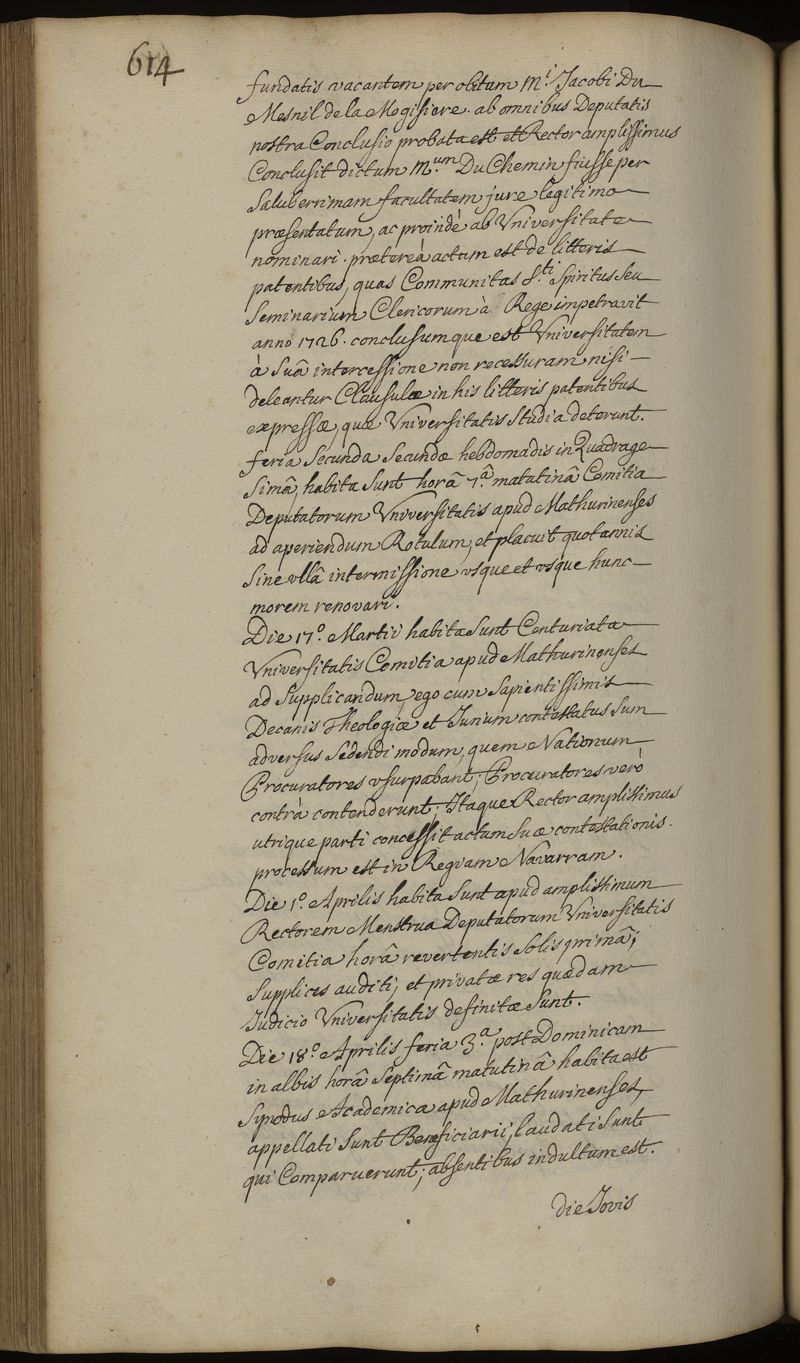 614
fundatis vacantem per obitum M.i Jacobi Du
Mesnil de la Mogisiere. ab omnibus Deputatis
nostra Conclusio probata est et Rector amplissimus
Conclusit dictum M.um Du Chemin fuisse per
Saluberrimam facultatem jure legitimo
præsentatum, ac proindè ab Vniversitate
nominari. prætereà actum est de litteris
patentibus, quas Communitas S.ti Spiritus seu
Seminarium Clericorum à Rege impetravit
anno 1726. conclusumque est Vniversitatem
à Suâ intercessione non recessuram nisi
deleantur Clausulæ in his litteris patentibus
expressæ, quæ Vniversitatis Studia deterunt.
feria Secunda Secundæ hebdomadis in Quadrage
Simâ, habita Sunt horâ 7.â matutinâ Comitia
Deputatorum Vniversitatis apud Mathurinenses
ad aperiendum Rotulum, et placuit quotannis
Sine vllâ intermissione vsque et vsque hunc
morem renovari.
Die 17.º Martii habita Sunt Centuriata
Vniversitatis Comitia apud Mathurinenses
ad Supplicandum, ego cum Sapientissimis
Decanis Theologiæ et Jurium contestatus Sum
adversus Sedendi modum, quem Nationum
Procuratores vsurpabant; Procuratores verò
contrà contenderunt; Itaque Rector amplissimus
utrique parti concessit actum Suæ contestationis.
processum est in Regiam Navarram.
Die 1.º Aprilis habita Sunt apud amplissimum
Rectorem Menstrua Deputatorum Vniversitatis
Comitia horâ revertentis Solis primâ;
Supplices auditi, et privatæ res quædam
Judicio Vniversitatis definitæ Sunt.
Die 18.º Aprilis feria 3.â post Dominicam
in albis horâ Septimâ matutinâ habita est
Synodus Academica apud Mathurinenses,
appellati Sunt Beneficiarii, laudati Sunt
qui Comparuerunt; absentibus indultum est.
die Jovis